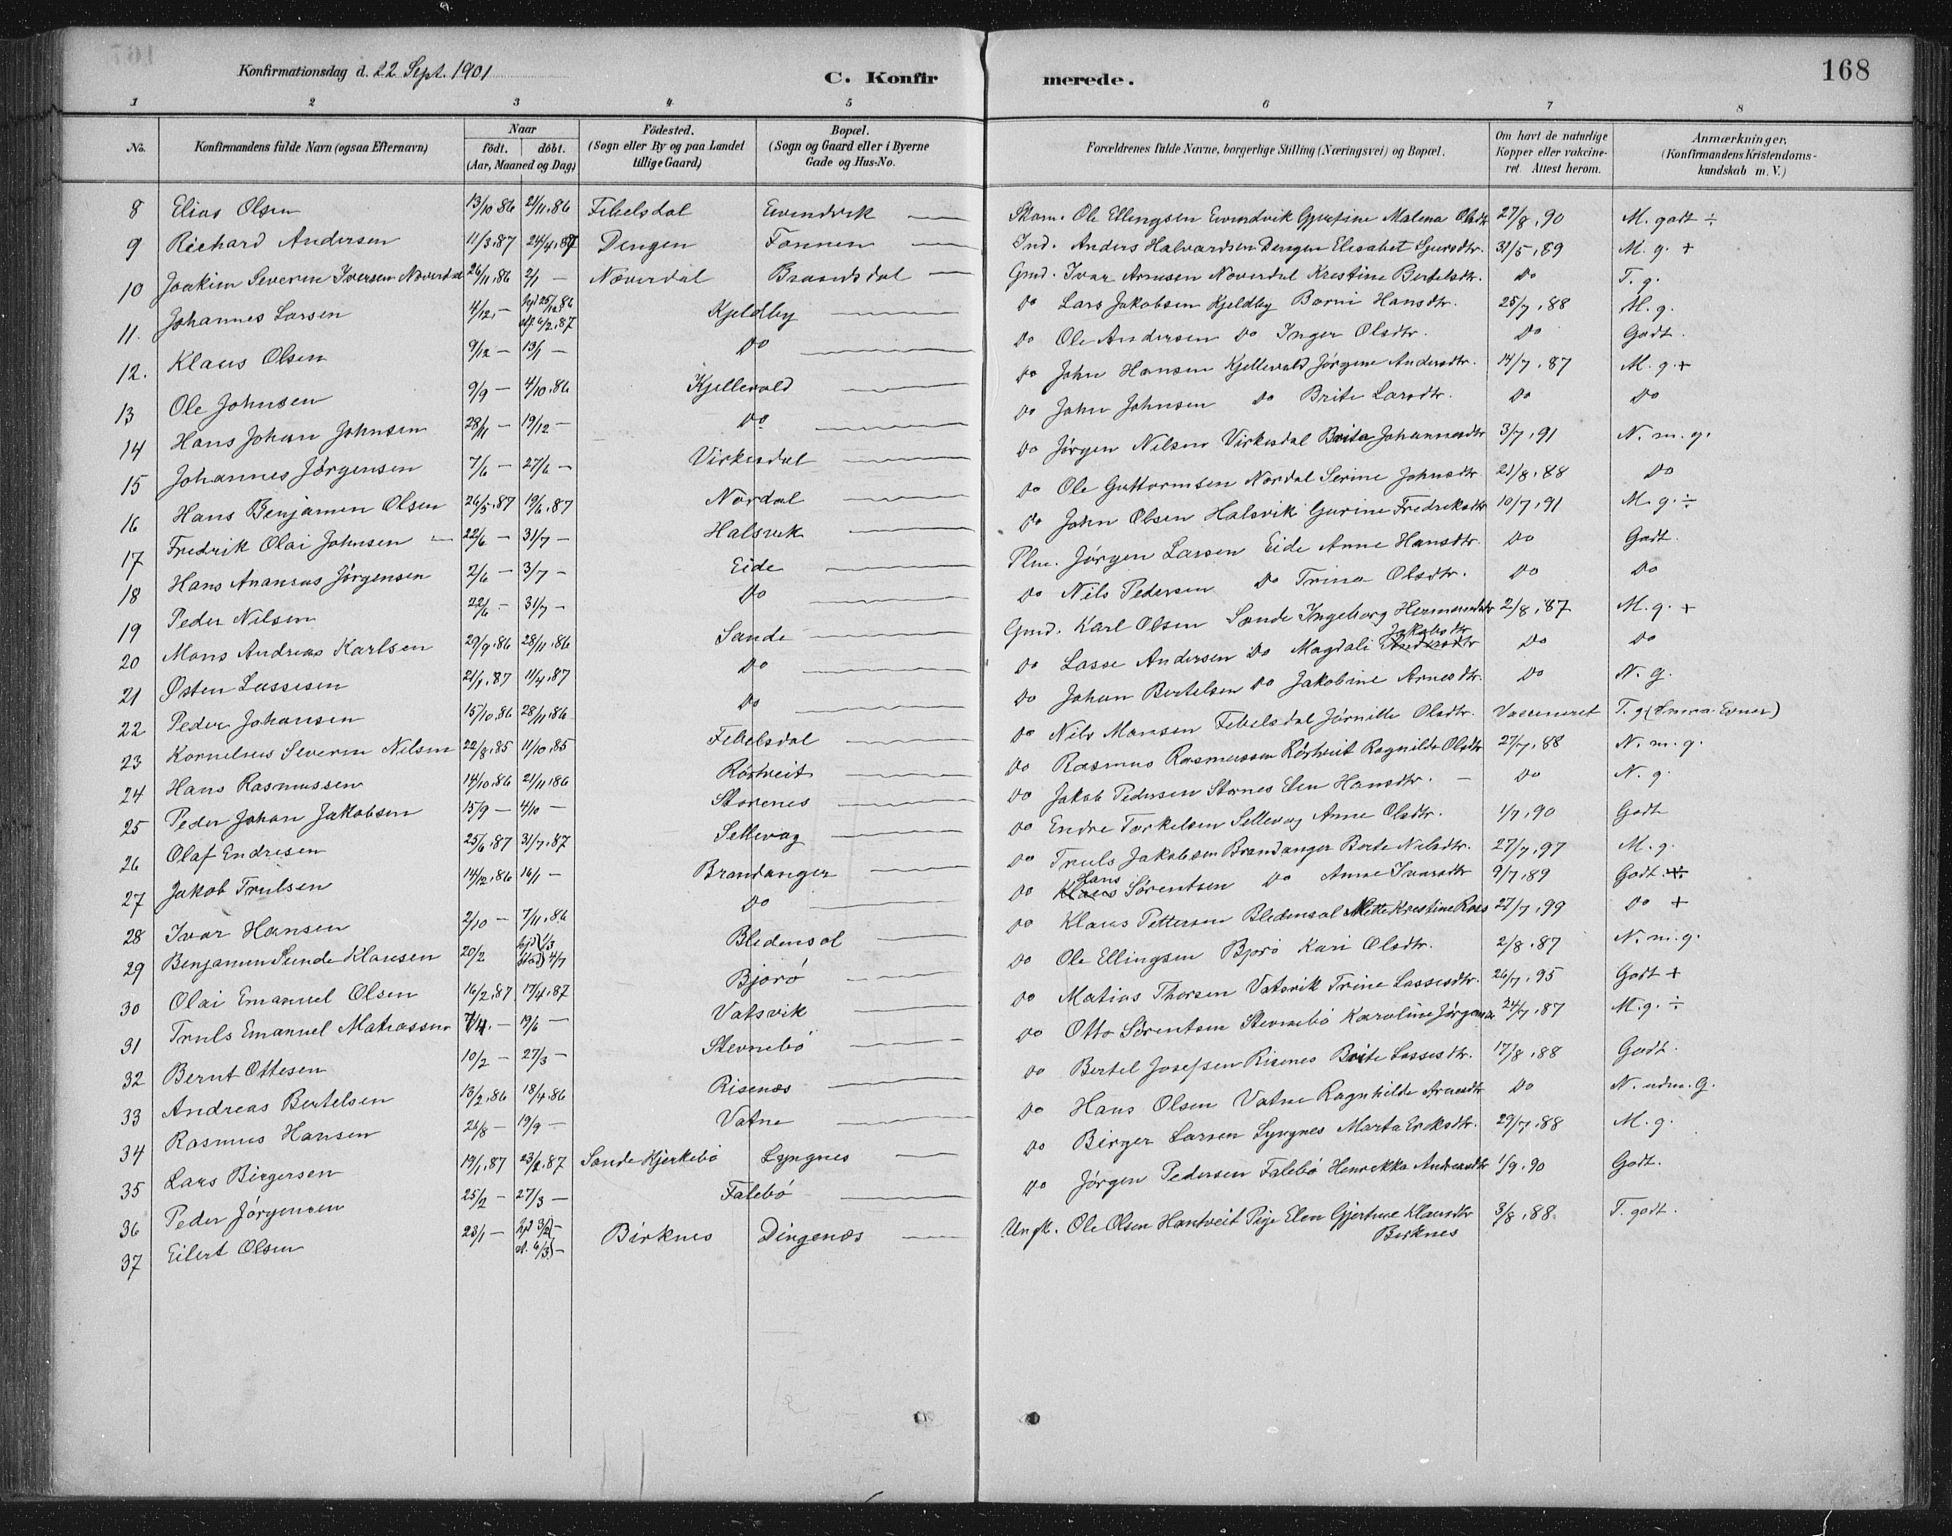 168
Konfirmationsdag d. 22 Sept. 1901
C. Konfir merede.
1 2 3 4 5 6 7 8
No. Konfirmandens fulde Navn (ogsaa Efternavn) Naar födt. döbt. (Aar, Maaned og Dag) Födested. (Sogn eller By og paa Landet tillige Gaard) Bopæl. (Sogn og Gaard eller i Byerne Gade og Hus-No. Forældrenes fulde Navne, borgerlige Stilling (Næringsvei) og Bopæl. Om havt de naturlige Kopper eller vakcineret. Attest herom. Anmærkninger. (Konfirmandens Kristendomskundskab m. V.)
8 Elias Olsen 13/10.86 21/11.86 Febelsdal Evendvik Ole Ellingsen Evindvik Malena Olsdtr 27/8.90 M. godt ÷
9 Richard Andersen 11/3.87 24/4.87 Dengen Fonnen Ind. Anders Halvardsen Dengen Elisabet Sjursdtr. 31/5.89 M. g. +
10 Joakim Severin Iversen Næverdal 26/11.86 2/1 — Næverdal Brandsdal Gmd. Ivar Arnesen Næverdal Kristine Bertelsdtr. Do T. g.
11. Johannes Larsen 4/12.— hjd 25/12.86 6/2.87 Kjeldby Do Lars Jakobsen Kjeldby Borni Hansdtr. 25/7.88 M. g.
12. Klaus Olsen 9/12 — 13/1 — Do Do Ole Andersen Do Inger Olsdtr. Do Godt.
13 Ole Johnsen 9/9 — 4/10.86 Kjellevold Do John Hansen Kjellevold Jørgine Andersdtr. 14/7.87 M. g. +
14 Hans Johan Johnsen 28/11 — 19/12 — Do Do John Johnsen Do Brite Larsdtr. Do Do
15 Johannes Jørgensen 7/6 — 27/6 — Virkesdal Do Jørgen Nilsen Virkesdal Brita Johannesdtr 3/7.91 N. m. g.
16 Hans Benjamin Olsen 26/5.87 19/6.87 Nordal Do Ole Guttormsen Nordal Serine Johnsdtr. 21/8.88 Do
17 Fredrik Olai Johnsen 22/6 — 31/7 — Halsvik Do John Olsen Halsvik Gurine Fredriksdtr 10/7.91 M. g. ÷
18 Hans Ananias Jørgensen 2/6 — 3/7 — Eide Plm. Jørgen Larsen Eide Anne Hansdtr. Do Godt.
19 Peder Nilsen 22/6 — 31/7 — Do Do Nils Pedersen Do Trina Olsdtr. Do Do
20 Mons Andreas Karlsen 29/9.86 28/11.86 Sande Gmd. Karl Olsen Sande Ingeborg 2/8.87 M. g. +
21 Østen Lassesen 21/1.87 11/4.87 Do Do Lasse Andersen Do Magdali Jakobsdtr Do Do
22 Peder Johansen 15/10.86 28/11.86 Do Do Johan Bertelsen Do Jakobine Arnesdtr. Do N. g.
23 Kornelius Severin Nilsen 22/8.85 11/10.85 Febelsdal Do Nils Monsen Febelsdal Jørnitte Olsdtr. Vaccineret T. g (Smaa Evner)
24 Hans Rasmussen 14/10.86 21/11.86 Röstveit Do Rasmus Rasmussen Röstveit Ragnilde Olsdtr 27/7.88 N. m. g.
25 Peder Johan Jakobsen 15/9 — 4/10 — Storenes Do Jakob Pedersen Stornes Elen Hansdtr. — Do N. g.
26 Olaf Endresen 25/6.87 31/7.87 Sellevag Do Endre Torkelsen Sellevag Anne Olsdtr. 1/7.90 Godt
27 Jakob Trulsen 14/12.86 16/1 — Brandanger Do Truls Jakobsen Brandanger Berte Nilsdtr. 27/7.97 M. g.
28 Ivar Hansen 2/10 — 7/11.86 Do Do Hans Sörentsen Do Anne Ivarsdtr 9/7.89 Godt.
29 Benjamin Sunde Klausen 20/2 hjd 1/3 4/7 Bledensol Do Klaus Pettersen Bledensol Mette Kristine 27/7.99 Do +
30 Olai Emanuel Olsen 16/2.87 17/4.87 Bjorö Do Ole Ellingsen Bjorö Kari Olsdtr. 2/8.87 N. m. g.
31 Truls Emanuel Matiassen 7/4.— 19/6 — Vatsvik Do Matias Thorsen Vatsvik Trine Lassesdtr. 26/7.95 Godt +
32 Bernt Ottesen 10/2 — 27/3 — Stevnebö Do Otto Sörentsen Stevnebö Karoline 24/7.87 M. g. ÷
33 Andreas Bertelsen 13/2.86 18/4.86 Risenæs Do Bertel Josefsen Risenes Brite Lassesdtr. 17/8.88 Godt.
34 Rasmus Hansen 26/8 — 19/9 — Vatne Do Hans Olsen Vatne Ragnhilde Arnesdtr Do N. udm. g.
35 Lars Birgersen 19/1.87 23/2.87 Sande Kjerkebö Lyngnes Do Birger Larsen Lyngnes Marta Eriksdtr. 29/7.88 M. g.
36 Peder Jørgensen 25/2 — 27/3 — Falebö Do Jørgen Pedersen Falebö Henrikka Andreasdtr 1/9.90 Godt.
37 Eilert Olsen 23/1 — hjd 3/2 — 6/3 — Birknes Dingenæs Ungk. Ole Olsen Hantveit Pige Elen Gjertine Klausdtr Birknes 3/8.88. T. godt.